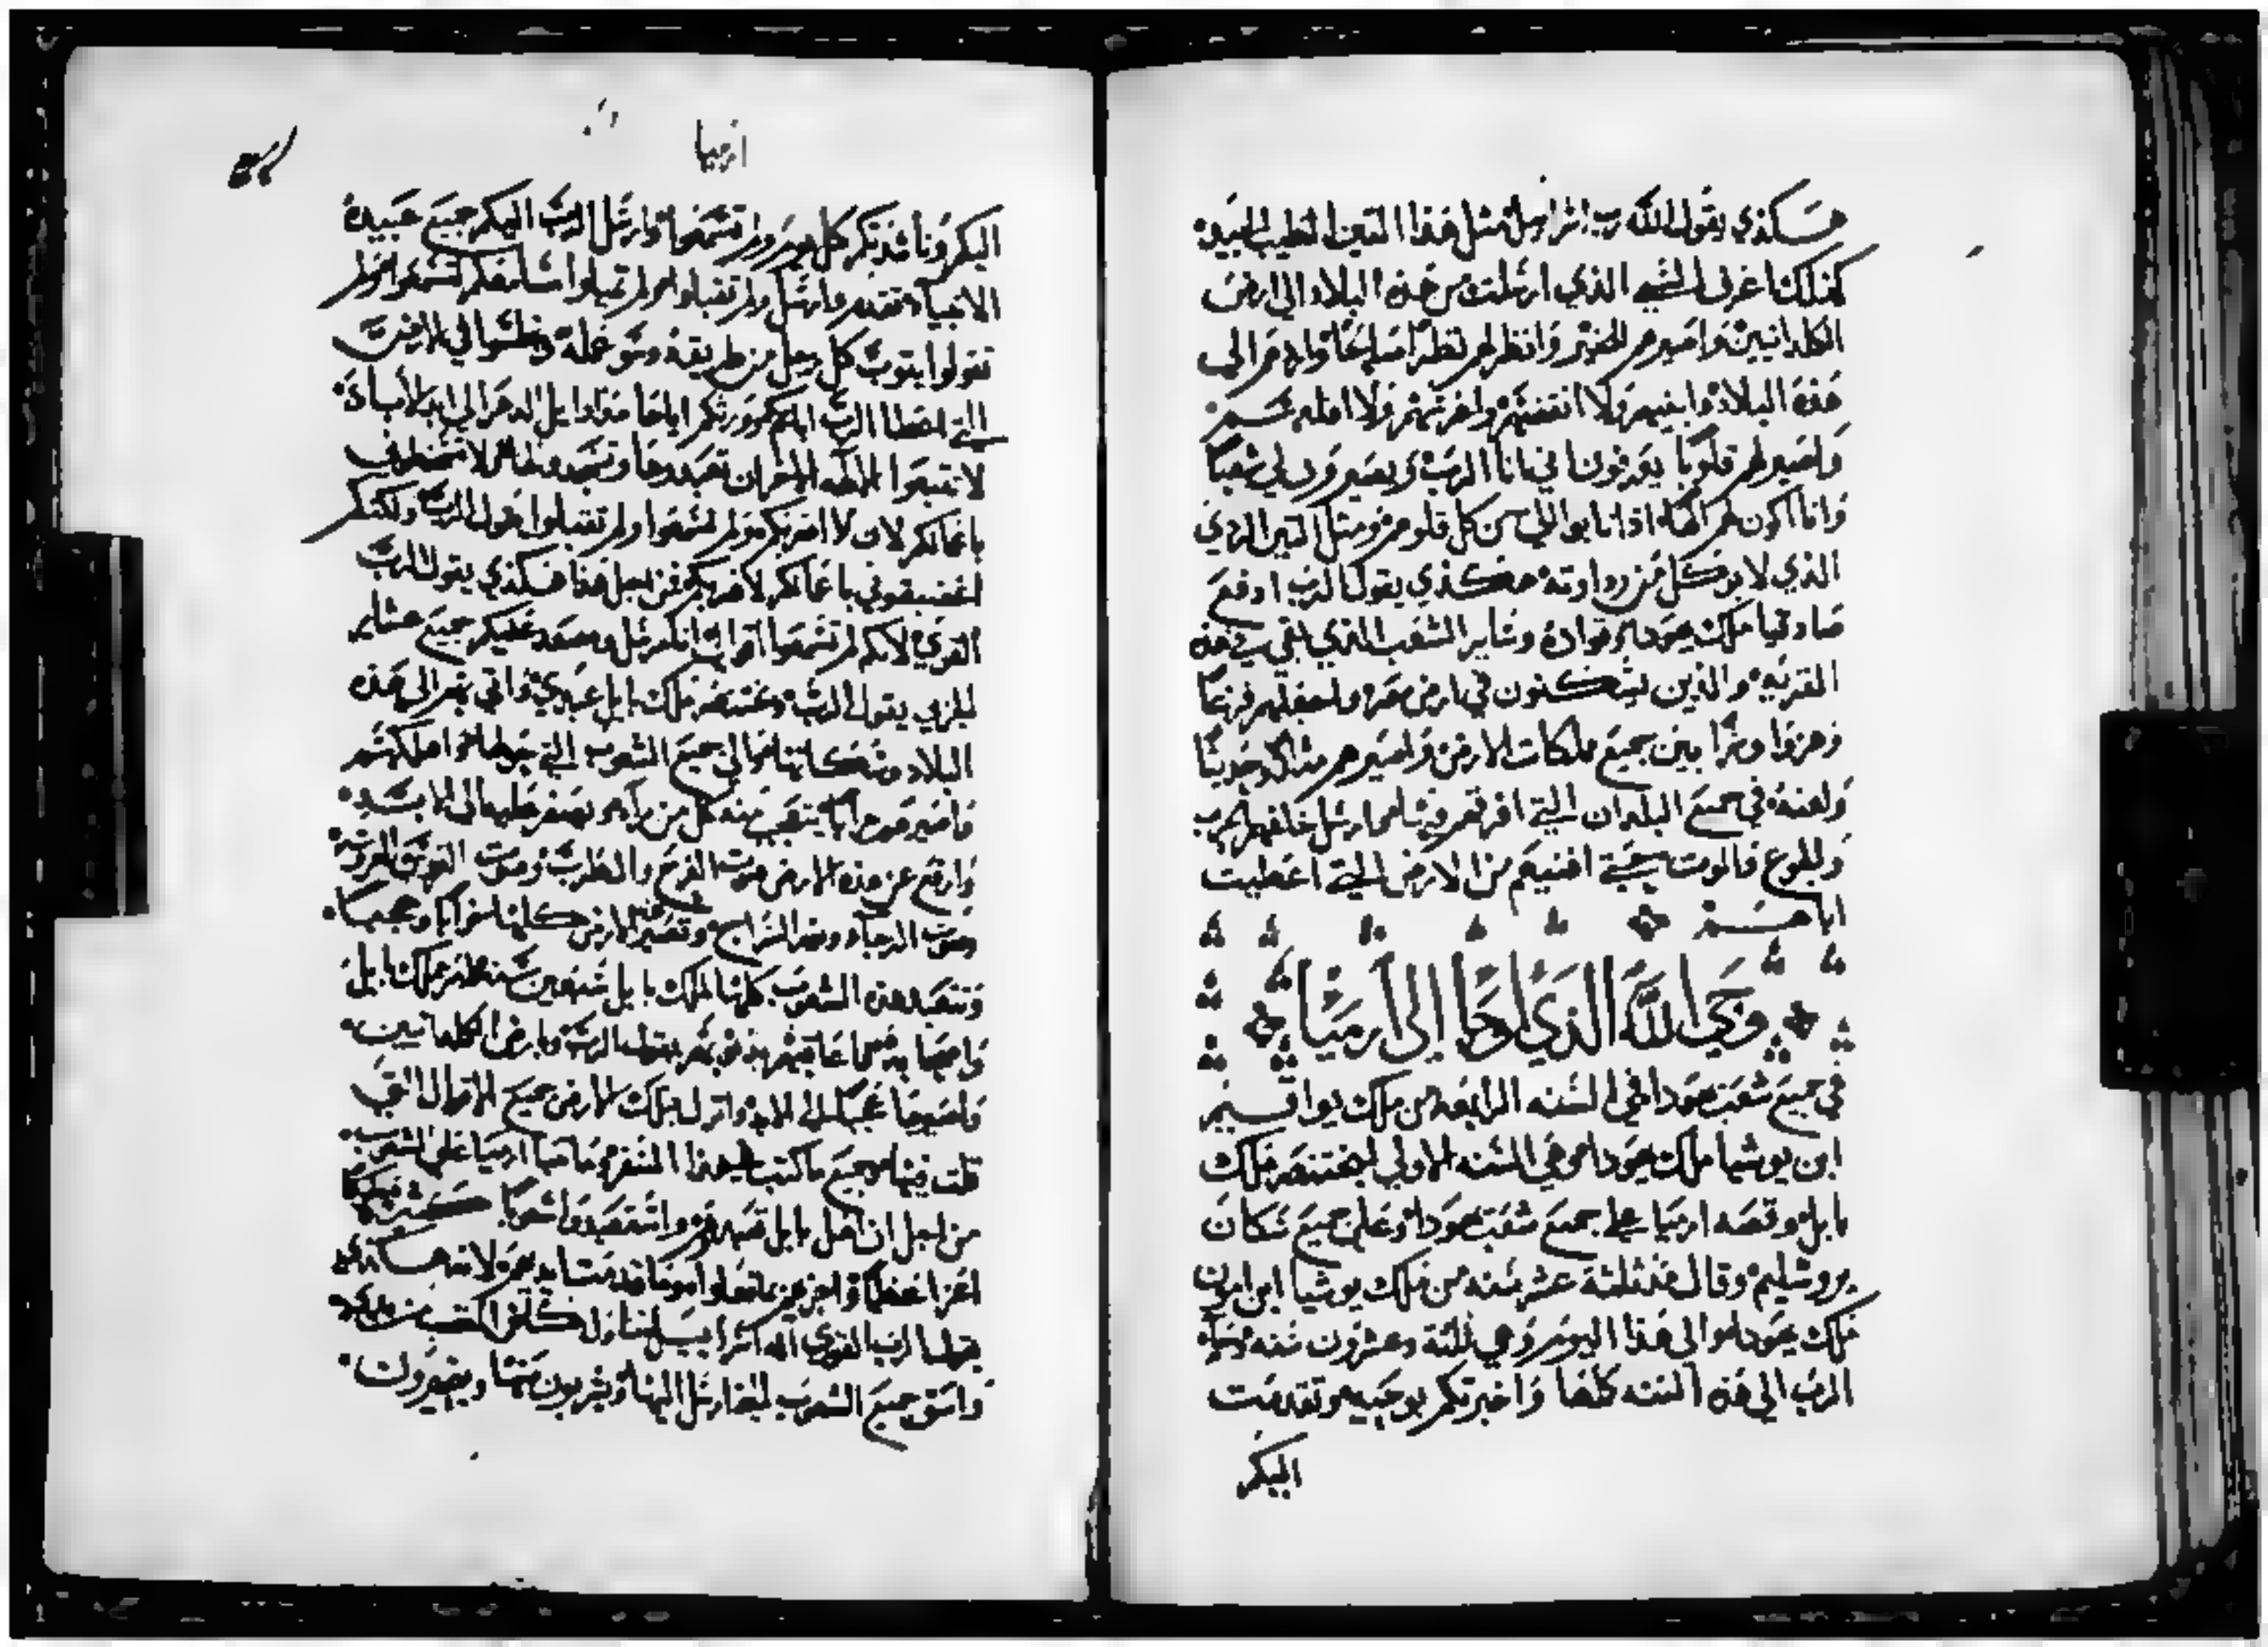 هكذي يقول الله رب اسراييل مثل هذا التين الطيب الجيد
كذلك اعرف السبي الذي ارسلت من هذه البلاد الي ارض
الكلدانيين واصيرهم للخير وانظر لهم نظرا صالحا واردهم الي
هذه البلاد وابنيهم ولا انقضهم واغرسهم ولا اقلعهم
واصير لهم قلوبا يعرفون اني انا الرب ويصيرون لي شعبا
وانا اكون لهم الها اذا تابوا الي من كل قلوبهم ومثل التين الردي
الذي لا يوكل من رداوته هكذي يقول الرب ادفع
صادقيا ملك يهودا وقواده وساير الشعب الذي بقي في هذه
القريه والذين يسكنون في ارض مصر واجعلهم فزعا
وهزوا وشرا بين جميع ملكات الارض واصيرهم مثلا وحديثا
ولعنة في جميع البلدان التي افرقهم فيها وارسل خلفهم الحرب
والجوع والموت حتي افنيهم من الارض التي اعطيت
اباهم
وحي الله الذي اوحا الي ارميا
في جميع شعب يهودا في السنه الرابعه من ملك يواقيم
ابن يوشيا ملك يهودا وهي السنه الاولي لبختنصر ملك
بابل وقصه ارميا علي جميع شعب يهودا وعلي جميع سكان
يروشليم وقال منذ ثلثة عشر سنه من ملك يوشيا ابن امون
ملك يهودا والي هذا اليوم وهي ثلثة وعشرون سنه
الرب الي هذه السنه كلها واخبرتكم بوحيه وتقدمت
اليكم
ارميا
اليكم وناشدتكم كل يوم ولم تسمعوا وارسل الرب اليكم جميع عبيده
الانبياء تقدم وارسل ولم تقبلوا ولم تميلوا مسامعكم لتسمعوا
تقولوا يتوب كل رجل من طريقه وسو عمله وتجلسوا في الارض
التي اعطا الرب اباكم وورثكم اياها الدهر الي ابد الاباد
لا تتبعوا الالهه الاخران تعبدوها وتسجدوا لها لا تسخطوني
باعمالكم لان لا اضر بكم ولم تسمعوا ولم تقبلوا قول الرب ولكنكم
اغضبتموني باعمالكم لاضر بكم فمن اجل هذا هكذي يقول الرب
القوي لانكم لم تسمعوا اقوالي انا مرسل ومصعد عليكم جميع عشاير
الجربي يقول الرب وبختنصر ملك بابل عبدي واتي بهم الي هذه
البلاد وسكانها والي جميع الشعوب التي حولها واهلكهم
واصيرهم خرابا يتعجب منه كل من يراه ويصفر عليها الي الابد
وارفع عن هذه الارض صوت الفرح والطرب وصوت العريس والعروسه
وصوت الرحاء وضو السراج وتصير الارض كلها خرابا وعجبا
وتتعبد هذه الشعوب كلها لملك بابل سبعين سنه ملك بابل
بذنوبهم يقول الرب وبارض الكلدانيين
واصيرها عجبا الي الابد وانزل بتلك الارض جميع الاقوال التي
قلت فيها وجميع ما كتب في هذا السفر وما تنبا ارميا علي الشعوب
من اجل ان اهل بابل تعبدوهم واستعبدوا شعوبا كثيره وملوكا
اعزا عظما واجزيهم ما فعلوا وما قدمت ايديهم لانه هكذي
يقول الرب القوي اله اسراييل
واسق جميع الشعوب التي ارسل اليها ويشربون منها ويصيرون